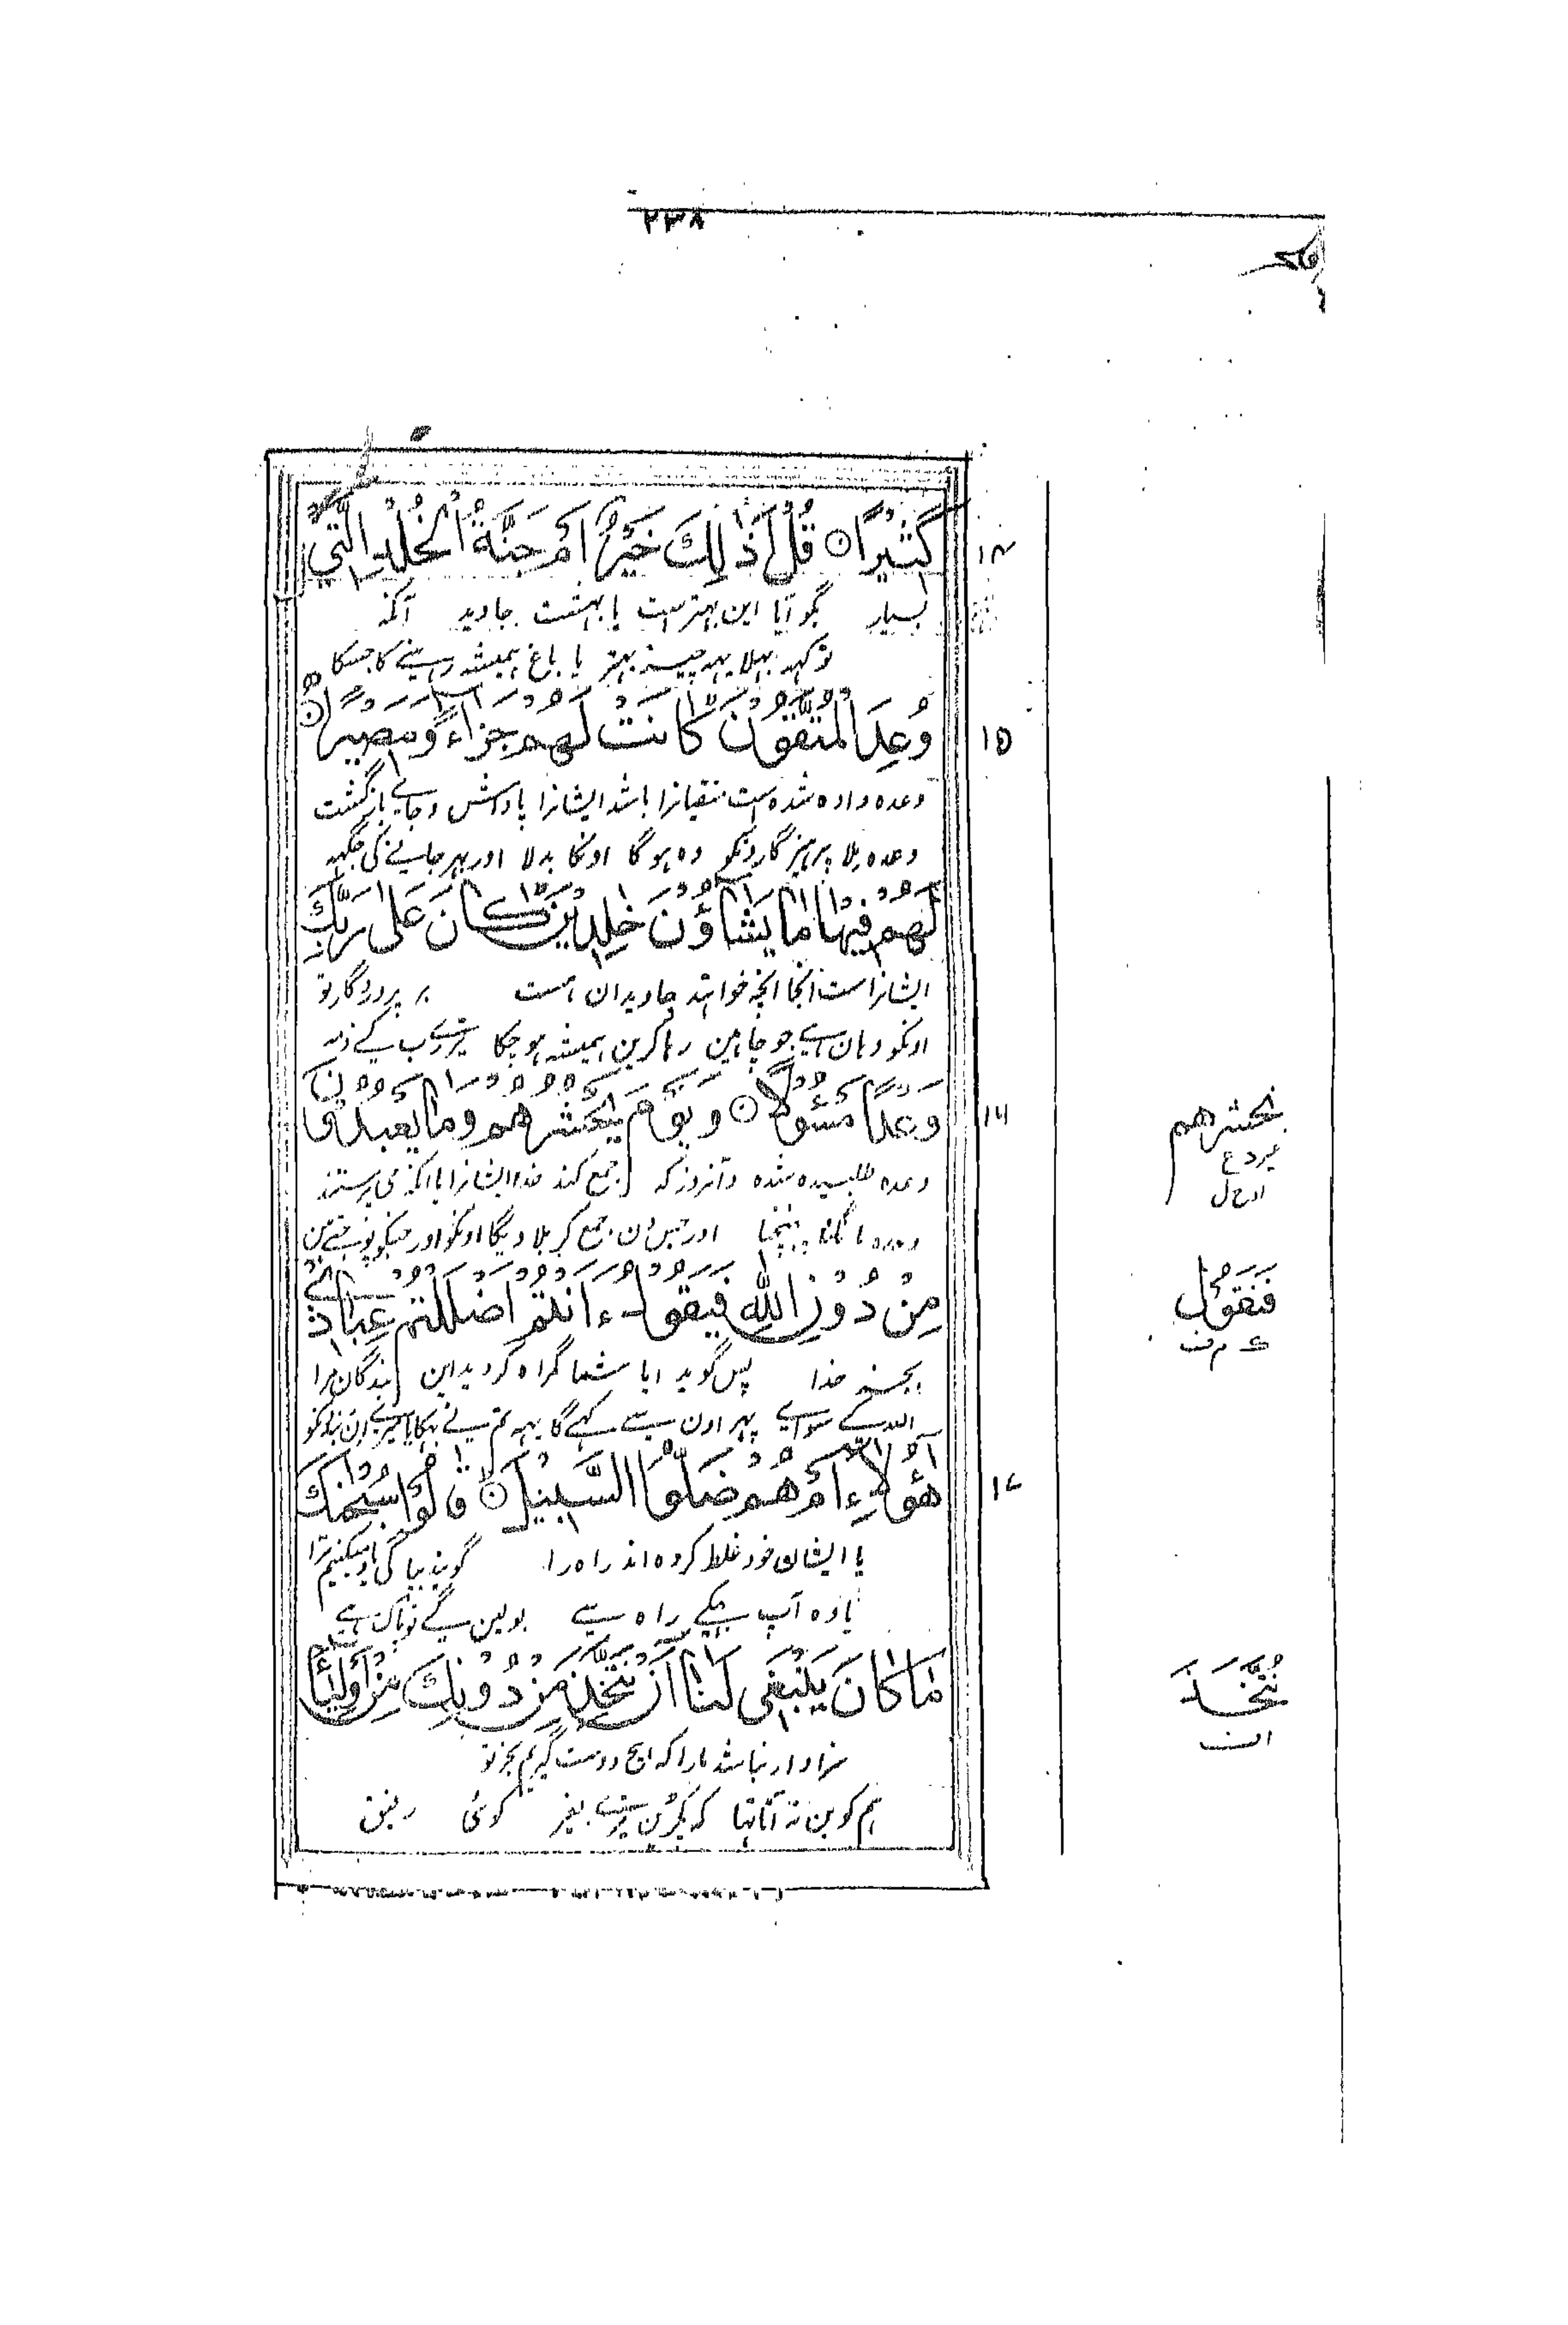 ۲۳۸
كَثِيْرًا ۝ قُلْ اَذٰلِكَ خَيْرٌ اَمْ جَنَّةُ الْخُلْدِ الَّتِيْ
۱۴
بسیار بگو آیا این بهترست یا بهشت جاوید آنکه
تو کہہ بہلا یہہ چیز بہتر یا باغ ہمیشہ رہنے کا جسکا
وُعِدَ الْمُتَّقُوْنَ كَانَتْ لَهُمْ جَزَآءً وَّمَصِيْرًا ۝
۱۵
وعده داده شده است متقیانرا باشد ایشانرا پاداش و جاے بازگشت
وعدہ ملا پرہیزگارونکو وہ ہوگا اونکا بدلا اور پہر جانے کی جگہہ
لَهُمْ فِيْهَا مَا يَشَآؤُنَ خٰلِدِيْنَ كَانَ عَلٰى رَبِّكَ
ایشانراست آنجا آنچه خواهند جاویدان هست بر پروردگار تو
اونکو وہان ہے جو چاہین رہاکرین ہمیشہ ہوچکا تیرے رب کے ذمہ
وَعْدًا مَّسْئُوْلًا ۝ وَيَوْمَ يَحْشُرُهُمْ وَمَا يَعْبُدُوْنَ
۱۶
وعده طلبیده شده و آنروز که جمع کند خدا ایشانرا با آنکه می پرستند
وعدہ مانگا پہنچتا اور جس دن جمع کر بلاویگا اونکو اور جنکو پوجتے ہین
مِنْ دُوْنِ اللّٰهِ فَيَقُوْلُ ءَاَنْتُمْ اَضْلَلْتُمْ عِبَادِيْ
بجز خدا پس گوید ایا شما گمراه کردید این بندگان مرا
اللہ کے سواے پہر اون سے کہے گا یہہ تم نے بہکایا میرے ان بندونکو
هٰٓؤُلَآءِ اَمْ هُمْ ضَلُّوا السَّبِيْلَ ۝ قَالُوْا سُبْحٰنَكَ
۱۷
یا ایشان خود غلط کرده اند راه را گویند بپاکی یاد میکنیم ترا
یا وہ آپ بہکے راہ سے بولین گے تو پاک ہے
مَا كَانَ يَنْبَغِيْ لَنَا اَنْ نَّتَّخِذَ مِنْ دُوْنِكَ مِنْ اَوْلِيَآءَ
سزاوار نباشد مارا که هیچ دوست گیریم بجز تو
ہم کو بن نہ آتا تہا کہ پکڑین تیرے بغیر کوئی رفیق
نَحْشُرُهُمْ
فَنَقُوْلُ
نُتَّخَذَ